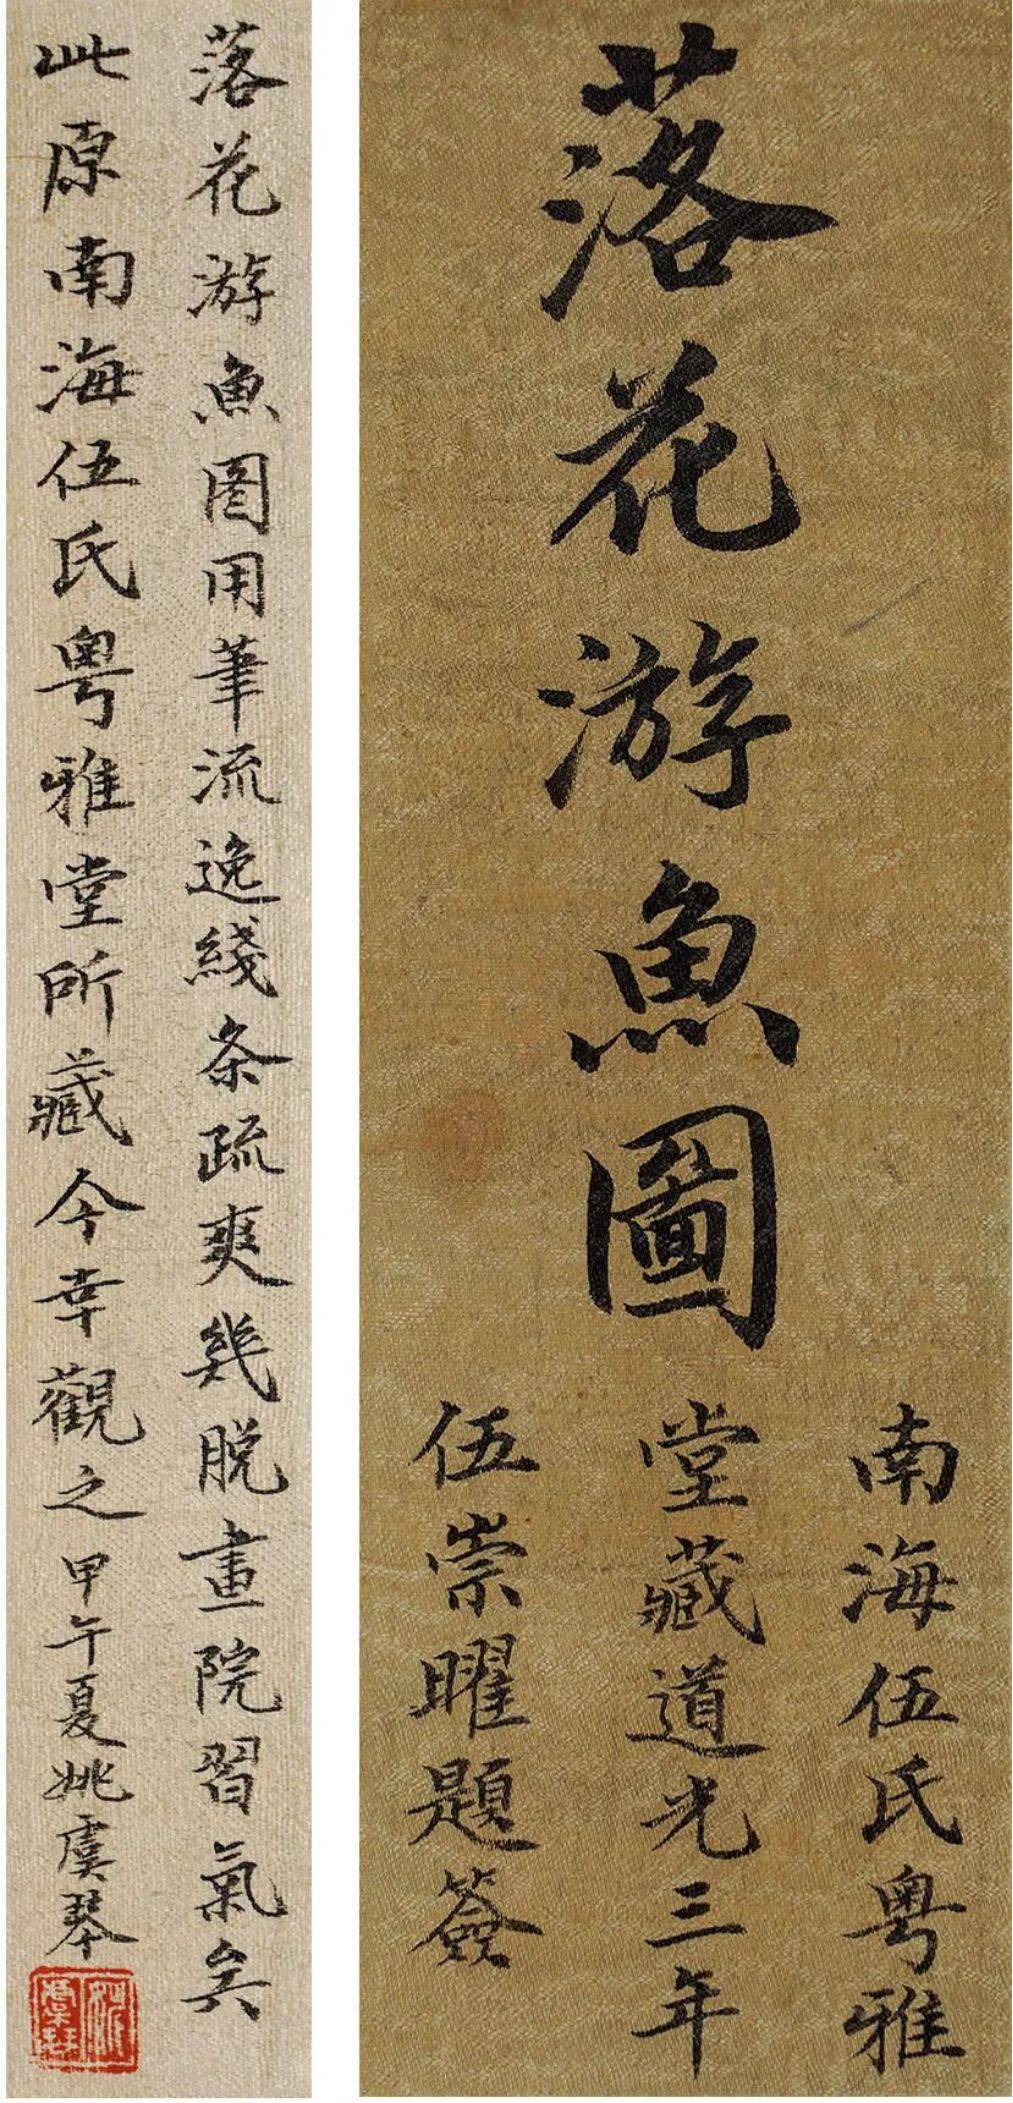 落花游魚圖
南海伍氏粤雅
堂藏道光三年
伍崇曜題簽
落花游魚图用筆流逸綫条疏爽幾脱畫院習氣矣
此原南海伍氏粤雅堂所藏今幸觀之甲午夏姚虞琴